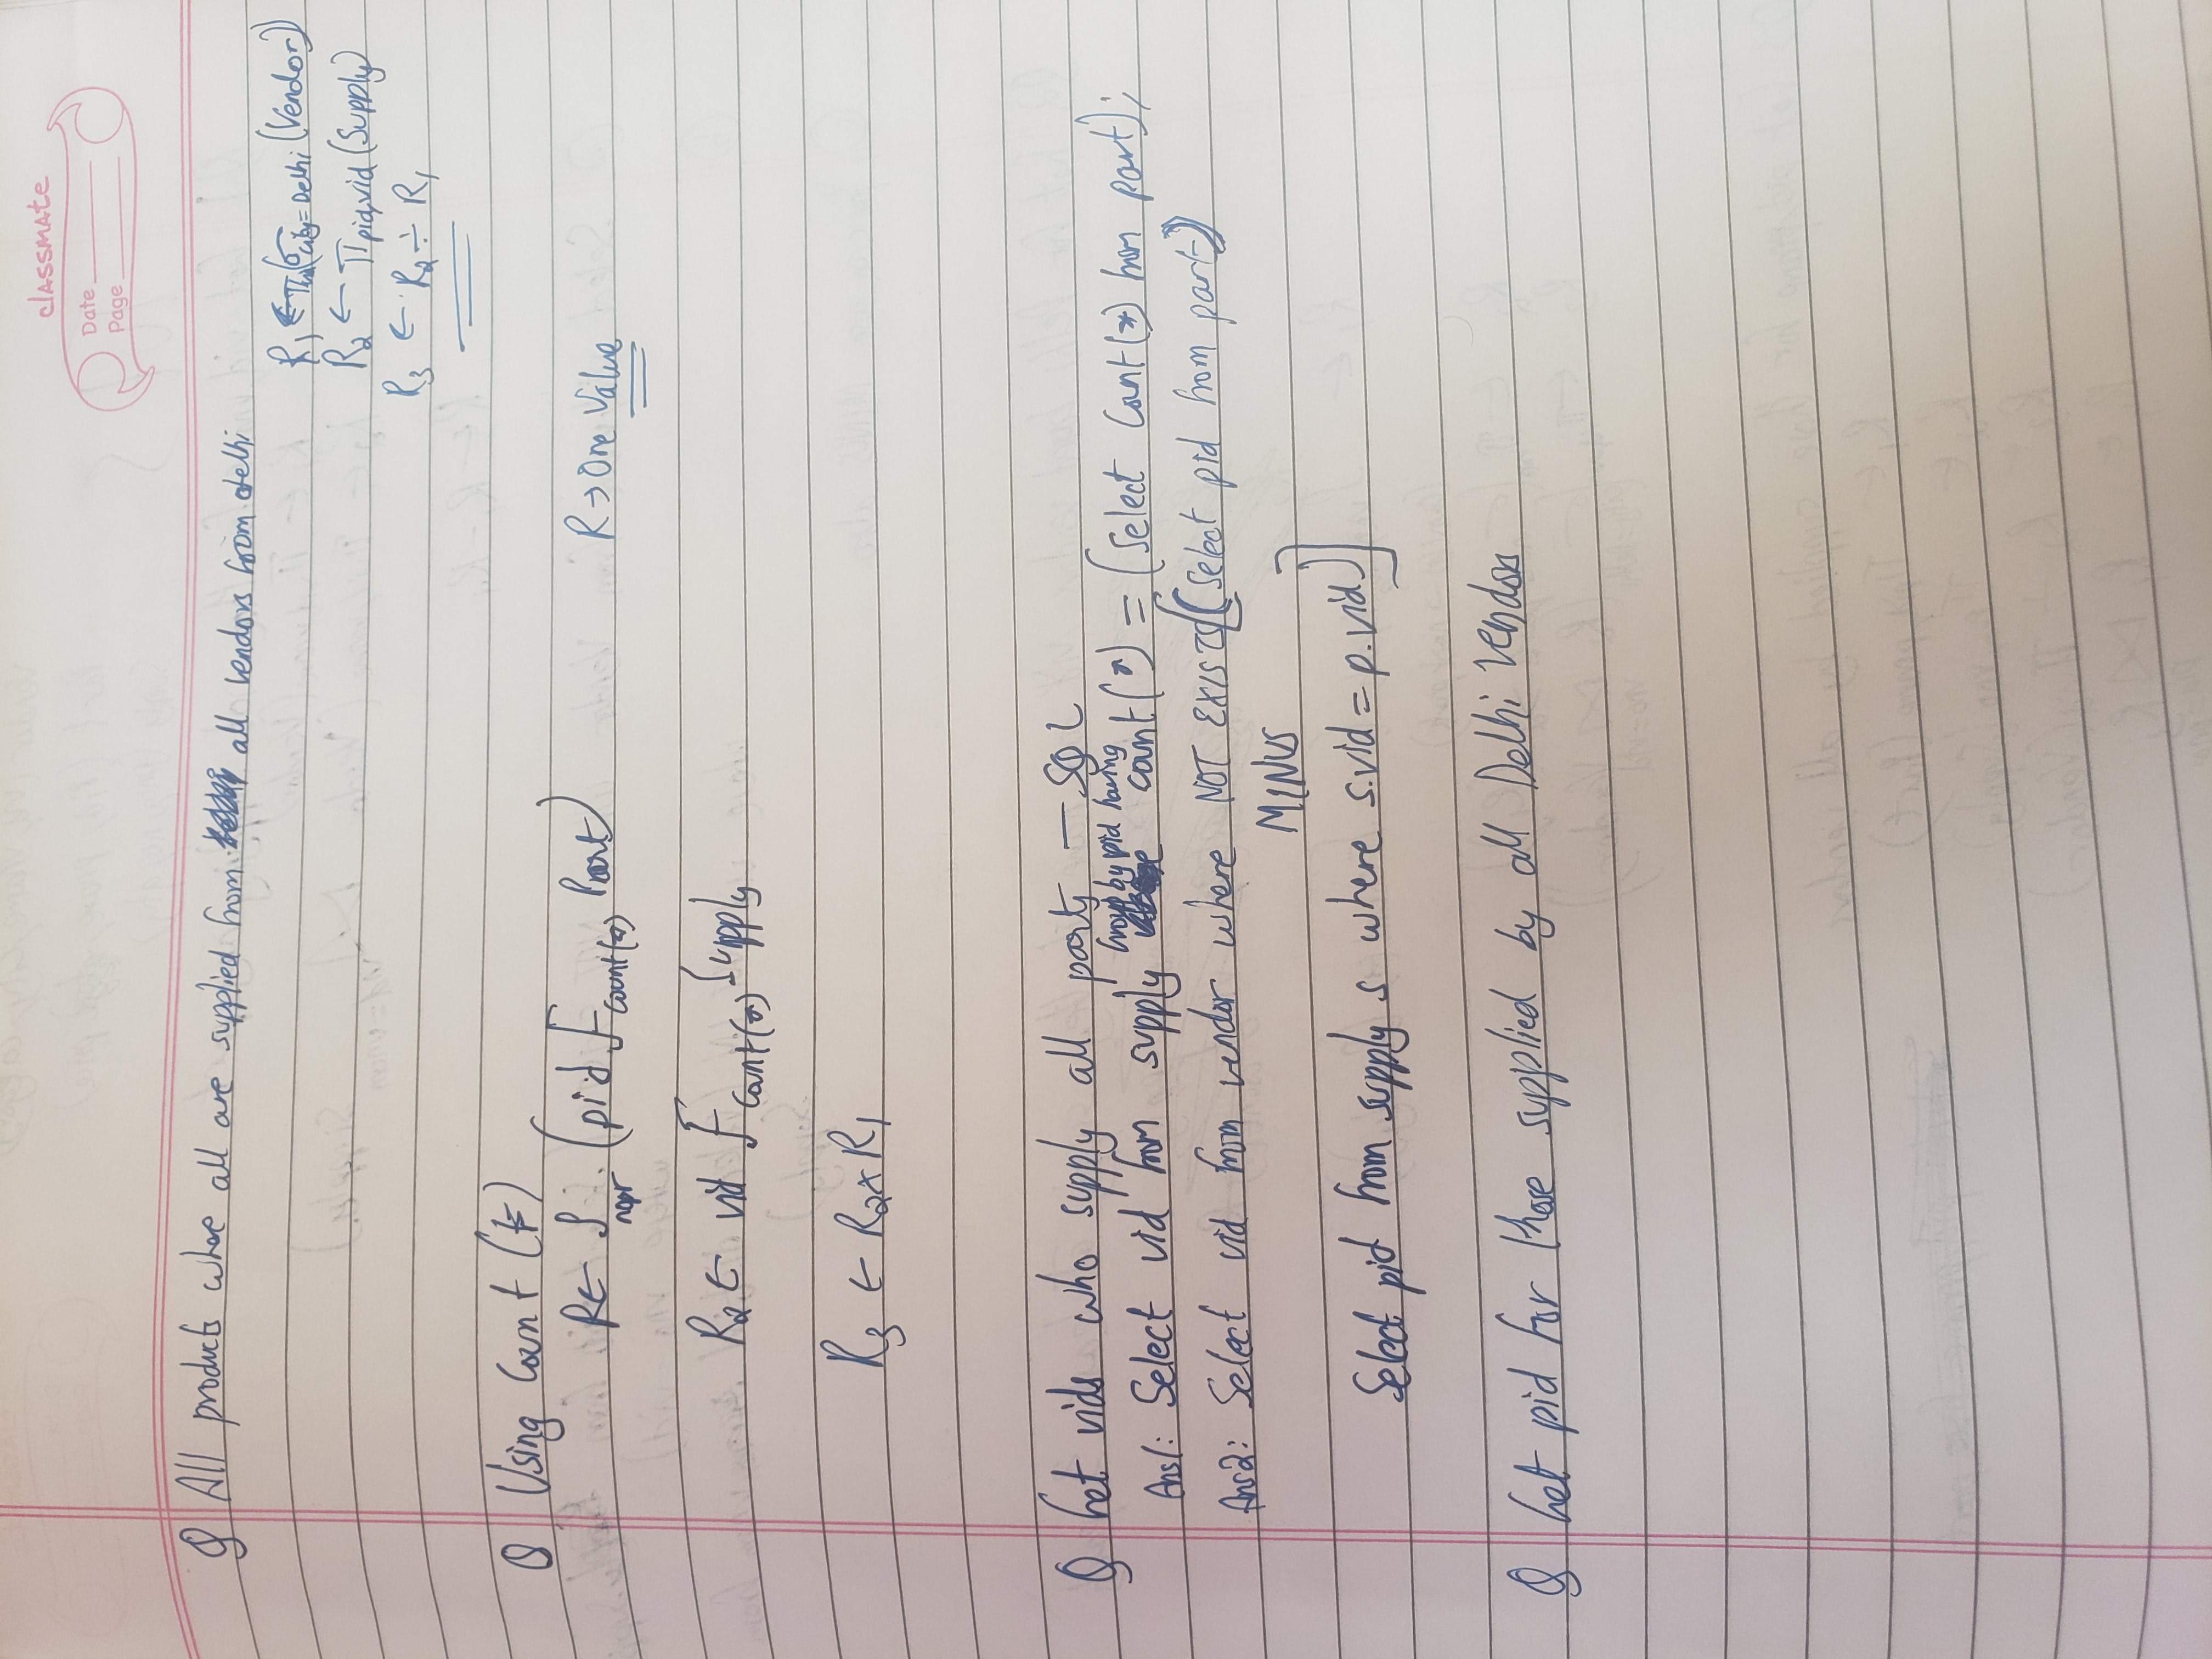 classmate
Date
Page
Q All products whose all are supplied from all vendors from delhi
R1 ← π (σcity=Delhi (Vendor))
R2 ← πpid,vid (Supply)
R3 ← R2 ÷ R1
Q Using Count (F)
R ← ρ (pid Fcount(*) Part)
R → One Value
R2 ← vid Fcount(*) Supply
R3 ← R2 × R1
Q Get vids who supply all parts — SQL
Ans1: Select vid from supply Group by pid having count(*) = (Select Count(*) from part);
Ans2: Select vid from vendor where NOT EXISTS [(Select pid from part)
MINUS
Select pid from supply s where s.vid = p.vid)]
Q Get pid for those supplied by all Delhi vendors